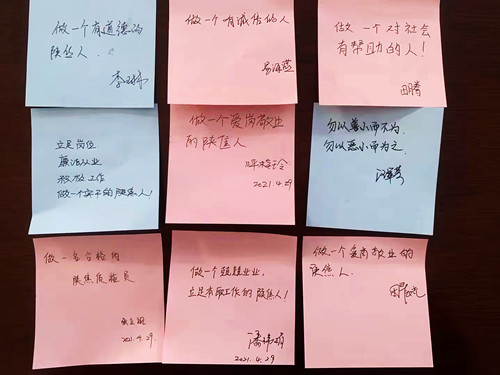 做一个有道德的
陕焦人.
做一个有诚信的人
做一个对社会
有帮助的人!
田腾
立足岗位
廉洁从业
做一个实干的陕焦人!
做一个爱岗敬业
的陕焦人
2021.4.29
勿以善小而不为,
勿以恶小而为之.
做一名合格的
陕焦质检员
2021.4.29.
做一个兢兢业业,
立足本职工作的陕焦人!
2021.4.29
做一个爱岗敬业的
陕焦人.